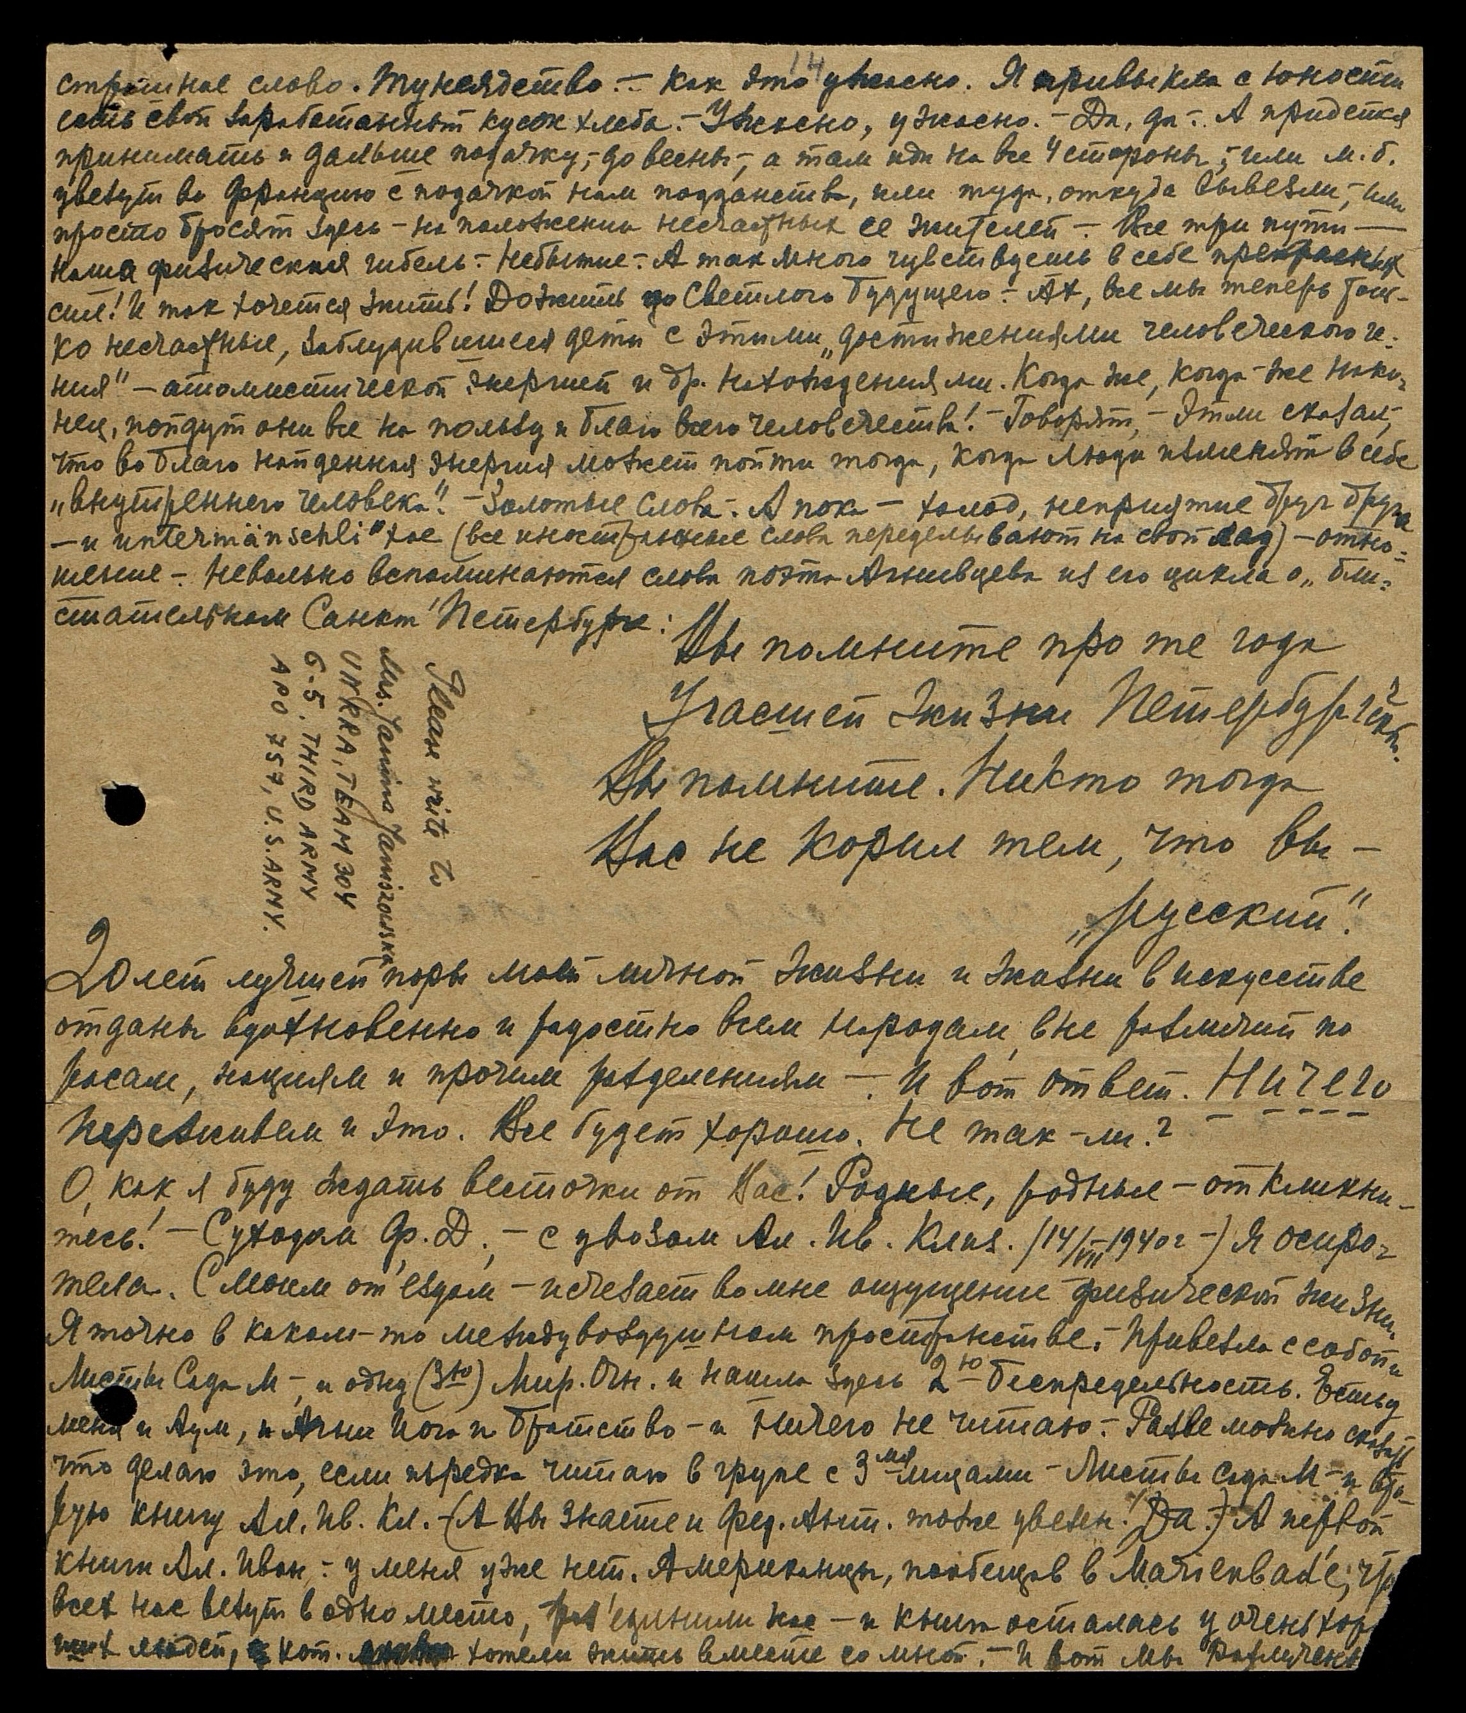 14
страшное слово. Тунеядство.– Как это ужасно. Я привыкла с юности
есть свой заработанный кусок хлеба.– Ужасно, ужасно.– Да, да–. А придется
принимать и дальше подачку,– до весны–, а там иди на все 4 стороны,– или м.б.
увезут во Францию с подачкой нам подданства, или туда, откуда вывезли,– или
просто бросят здесь – на положении несчастных ее жителей–. Все три пути —
наша физическая гибель–. Небытие–. А так много чувствуешь в себе прекрасных
сил! И так хочется жить! Дожить до Светлого будущего–. Ах, все мы теперь толь-
ко несчастные, заблудившиеся дети с этими „достижениями человеческого ге-
ния" – атомистической энергией и др. нахождениями. Когда же, когда-же нако-
нец, пойдут они все на пользу и благо всего человечества! – Говорят, – Этли сказал,
что во благо найденная энергия может пойти тогда, когда люди изменят в себе
„внутреннего человека". – Золотые слова–. А пока – холод, неприятие друг друга
– и untermänschli"хое (все иностранные слова переделывают на свой лад) – отно-
шение–. Невольно вспоминаются слова поэта Агнивцева из его цикла о „бли-
стательном Санкт Петербурге:
Вы помните про те года
Угасшей жизни Петербургской.
Вы помните. Никто тогда
Вас не корил тем, что вы –
„русский".
Please write to
Mrs. Janina Janiszowska
UNRRA, TEAM 304
G-5. THIRD ARMY
APO 757, U.S.ARMY.
20 лет лучшей поры моей личной жизни и жизни в искусстве
отданы вдохновенно и радостно всем народам, вне различий по
расам, нациям и прочим разделениям –. И вот ответ. Ничего
переживем и это. Все будет хорошо. Не так-ли.?
О, как я буду ждать весточки от Вас! Родные, родные – откликни-
тесь! – Суходом Ф.Д., – с увозом Ал. Ив. Клиз. /14/VII 1940г –) Я осиро-
тела. С моим от'ездом – исчезает во мне ощущение физической жизни.
Я точно в каком-то междувоздушном пространстве.– Привезла с собой и
Листы Сада М–, и одну (3ью) Мир. Огн. и нашла здесь 2ю Беспредельность. Есть у
меня и Аум, и Агни Йога и Братство – и ничего не читаю–. Разве можно сказать
что делаю это, если изредка читаю в групе с 3мя лицами – Листы Сада М – и вто-
рую книгу Ал. Ив. Кл. –(А Вы знаете и Фед. Ант. тоже увезен! Да.) А первой
книги Ал. Иван.– у меня уже нет. Американцы, пообещав в Marienbad'е,
всех нас везут в одно место, раз'единили нас – и книга осталась у очень
людей, кот. хотели жить вместе со мной.– И вот мы